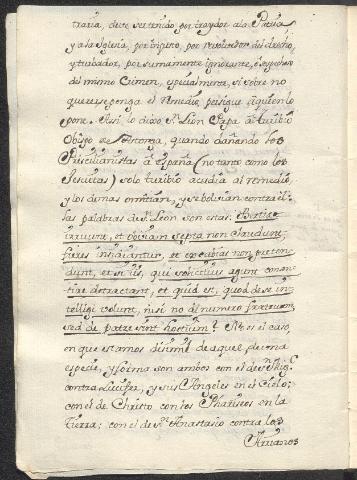 traria, debe ser tenido por traydor a la Patria
y a la Iglesia, por injusto, por revolvedor del
y turbador, por sumamente ignorante, ò sospechoso
del mismo Crimen, especialmente, si sobre no
querer se ponga el remedio, persigue à quien lo
pone. Assi lo dixo Sn. Leon Papa à Turibio
Obispo de Astorga, quando dañando los
Priscilianistas à España (no tanto como los
Jesuitas) solo Turibio acudia al remedio,
y los demas omitian, y se bolvian contra él:
las palabras de Sn. Leon son estas: Bestiae
irruunt, et ovium septa non claudunt:
fures insidiantur, et excubias non preten-
dunt, et si iis, qui solicitius agunt conan-
tur detractant, et quid est, quod se in-
telligi volunt, nisi non al numero fratrum,
sed de parte sint hostium? No es el caso
en que estamos disimil de aquel, de una
especie, y forma son ambos con el de Sn. Migl.
contra Lucifer, y sus Angeles en el Cielo;
con el de Christo con los Phariseos en la
Tierra; con el de Sn. Anastasio contra los
Arrianos